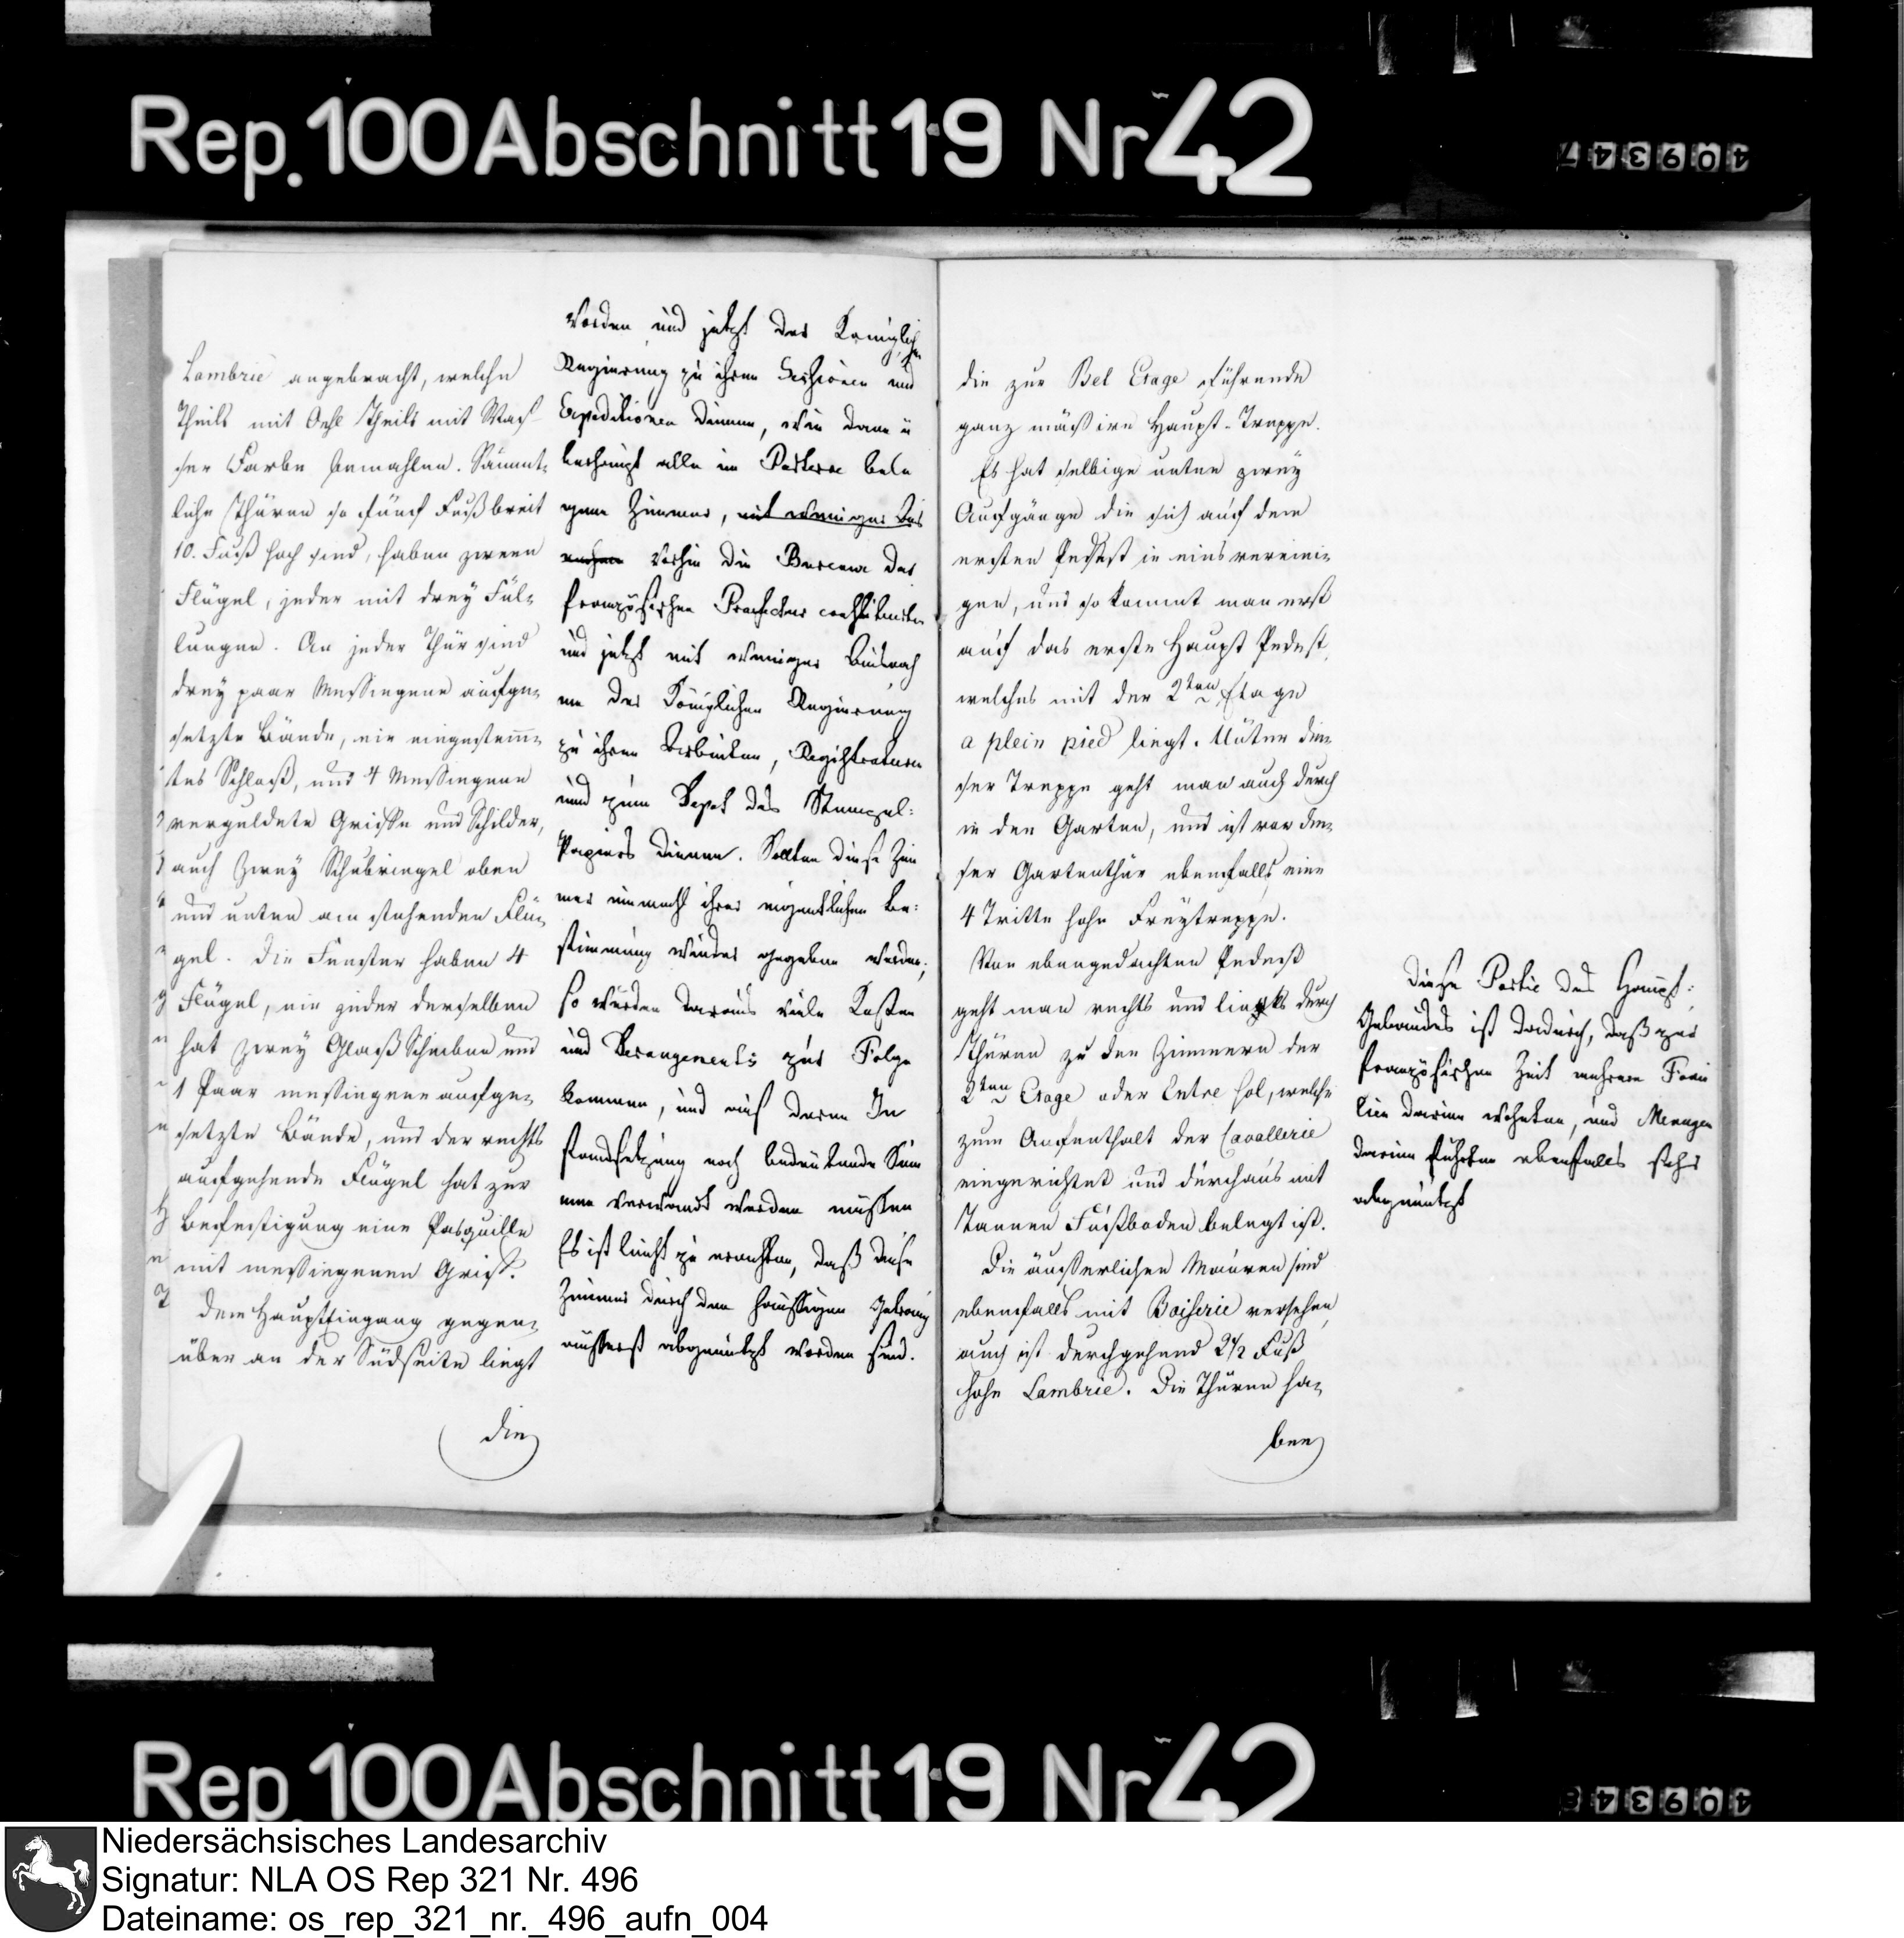 Rep. 100 Abschnitt 19 Nr 42
409347
Lambrie angebracht, welche
theils mit Oehl theils mit Waß-
ser Farbe bemahlen. Sämmt-
liche Thüren so fünf Fuß breit
10. Fuß hoch sind, haben zween
Flügel, jeder mit drey Fül-
lungen. An jeder Thür sind
drey paar Messingene aufge-
setzte Bände, ein eingestemm-
tes Schloß, und 4 Messingene
verguldete Griffe und Schilder,
auch zwey Schubriegel oben
und unten am stehenden Flü-
gel. Die Fenster haben 4
Flügel, ein jeder derselben
hat zwey Glaß Scheiben und
1 Paar messingene aufge-
setzte Bände, und der rechts
aufgehende Flügel hat zur
Befestigung eine Pasquille
mit messingenen Griff.
Dem Haupteingang gegen-
über an der Südseite liegt
die
worden und jetzt der Königlichen
Regierung zu ihren Sessionen und
Expeditionen dienen, wie dann ü
berhaupt alle im Parterre bele
gene Zimmer, mit weniger Aus
nahme vorhin die Bureaux der
französischen Praefectur constituirten
und jetzt mit weniger Ausnah
me der Königlichen Regierung
zu ihren Arbeiten, Registraturen
und zum Depot des Stempel-
Papiers dienen. Sollten diese Zim
mer einmahl ihrer eigentlichen Be-
stimmung wieder gegeben werden,
so würden daraus viele Kosten
und Derangements zur Folge
kommen, und auf deren In
standsetzung noch bedeutende Sum
men verwandt werden müssen
Es ist leicht zu erachten, daß diese
Zimmer durch den häufigen Gebrauch
äusserst abgenutzt worden sind.
die zur Bel Etage führende
ganz mässive Haupt-Treppe.
Es hat selbige unten zwey
Aufgänge die sich auf dem
ersten Pedest in eins vereini-
gen, und so kommt man erst
auf das erste Haupt Pedest,
welches mit der 2ten Etage
a plein pied liegt. Unter die-
ser Treppe geht man auch durch
in den Garten, und ist vor die-
ser Gartenthür ebenfalls eine
4 Tritte hohe Freytreppe.
Von ebengedachten Pedest
geht man rechts und links durch
Thüren zu den Zimmern der
2ten Etage oder Entre sol, welche
zum Aufenthalt der Cavallerie
eingerichtet und durchaus mit
tannen Fußboden belegt ist.
Die äusserlichen Mauren sind
ebenfalls mit Boiserie versehen,
auch ist durchgehend 2 1/2 Fuß
hohe Lambrie. Die Thüren ha-
ben
Diese Partie des Haupt-
Gebäudes ist dadurch, daß zur
französischen Zeit mehrere Fami
lien darinn wohnten, und Menage
darinn führten ebenfalls sehr
abgenutzt
Rep. 100 Abschnitt 19 Nr 42
409348
Niedersächsisches Landesarchiv
Signatur: NLA OS Rep 321 Nr. 496
Dateiname: os_rep_321_nr._496_aufn_004